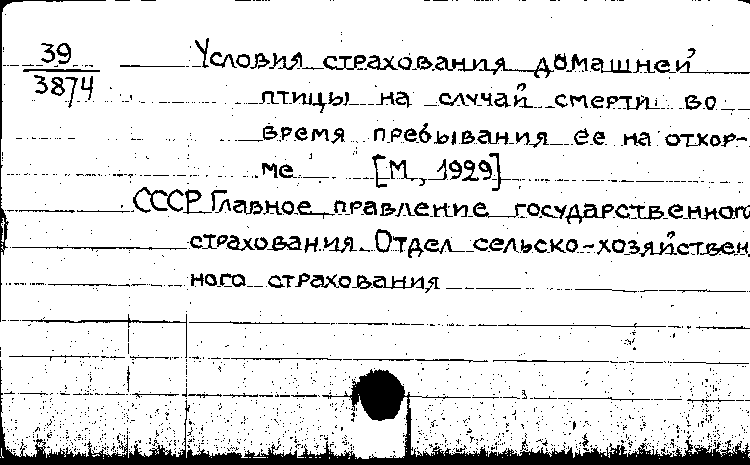 39
3874
Условия страхования домашней
птицы на случай смерти во
время пребывания ее на откор-
ме [М, 1929]
СССР Главное правление государственного
страхования. Отдел сельско-хозяйствен
ного страхования